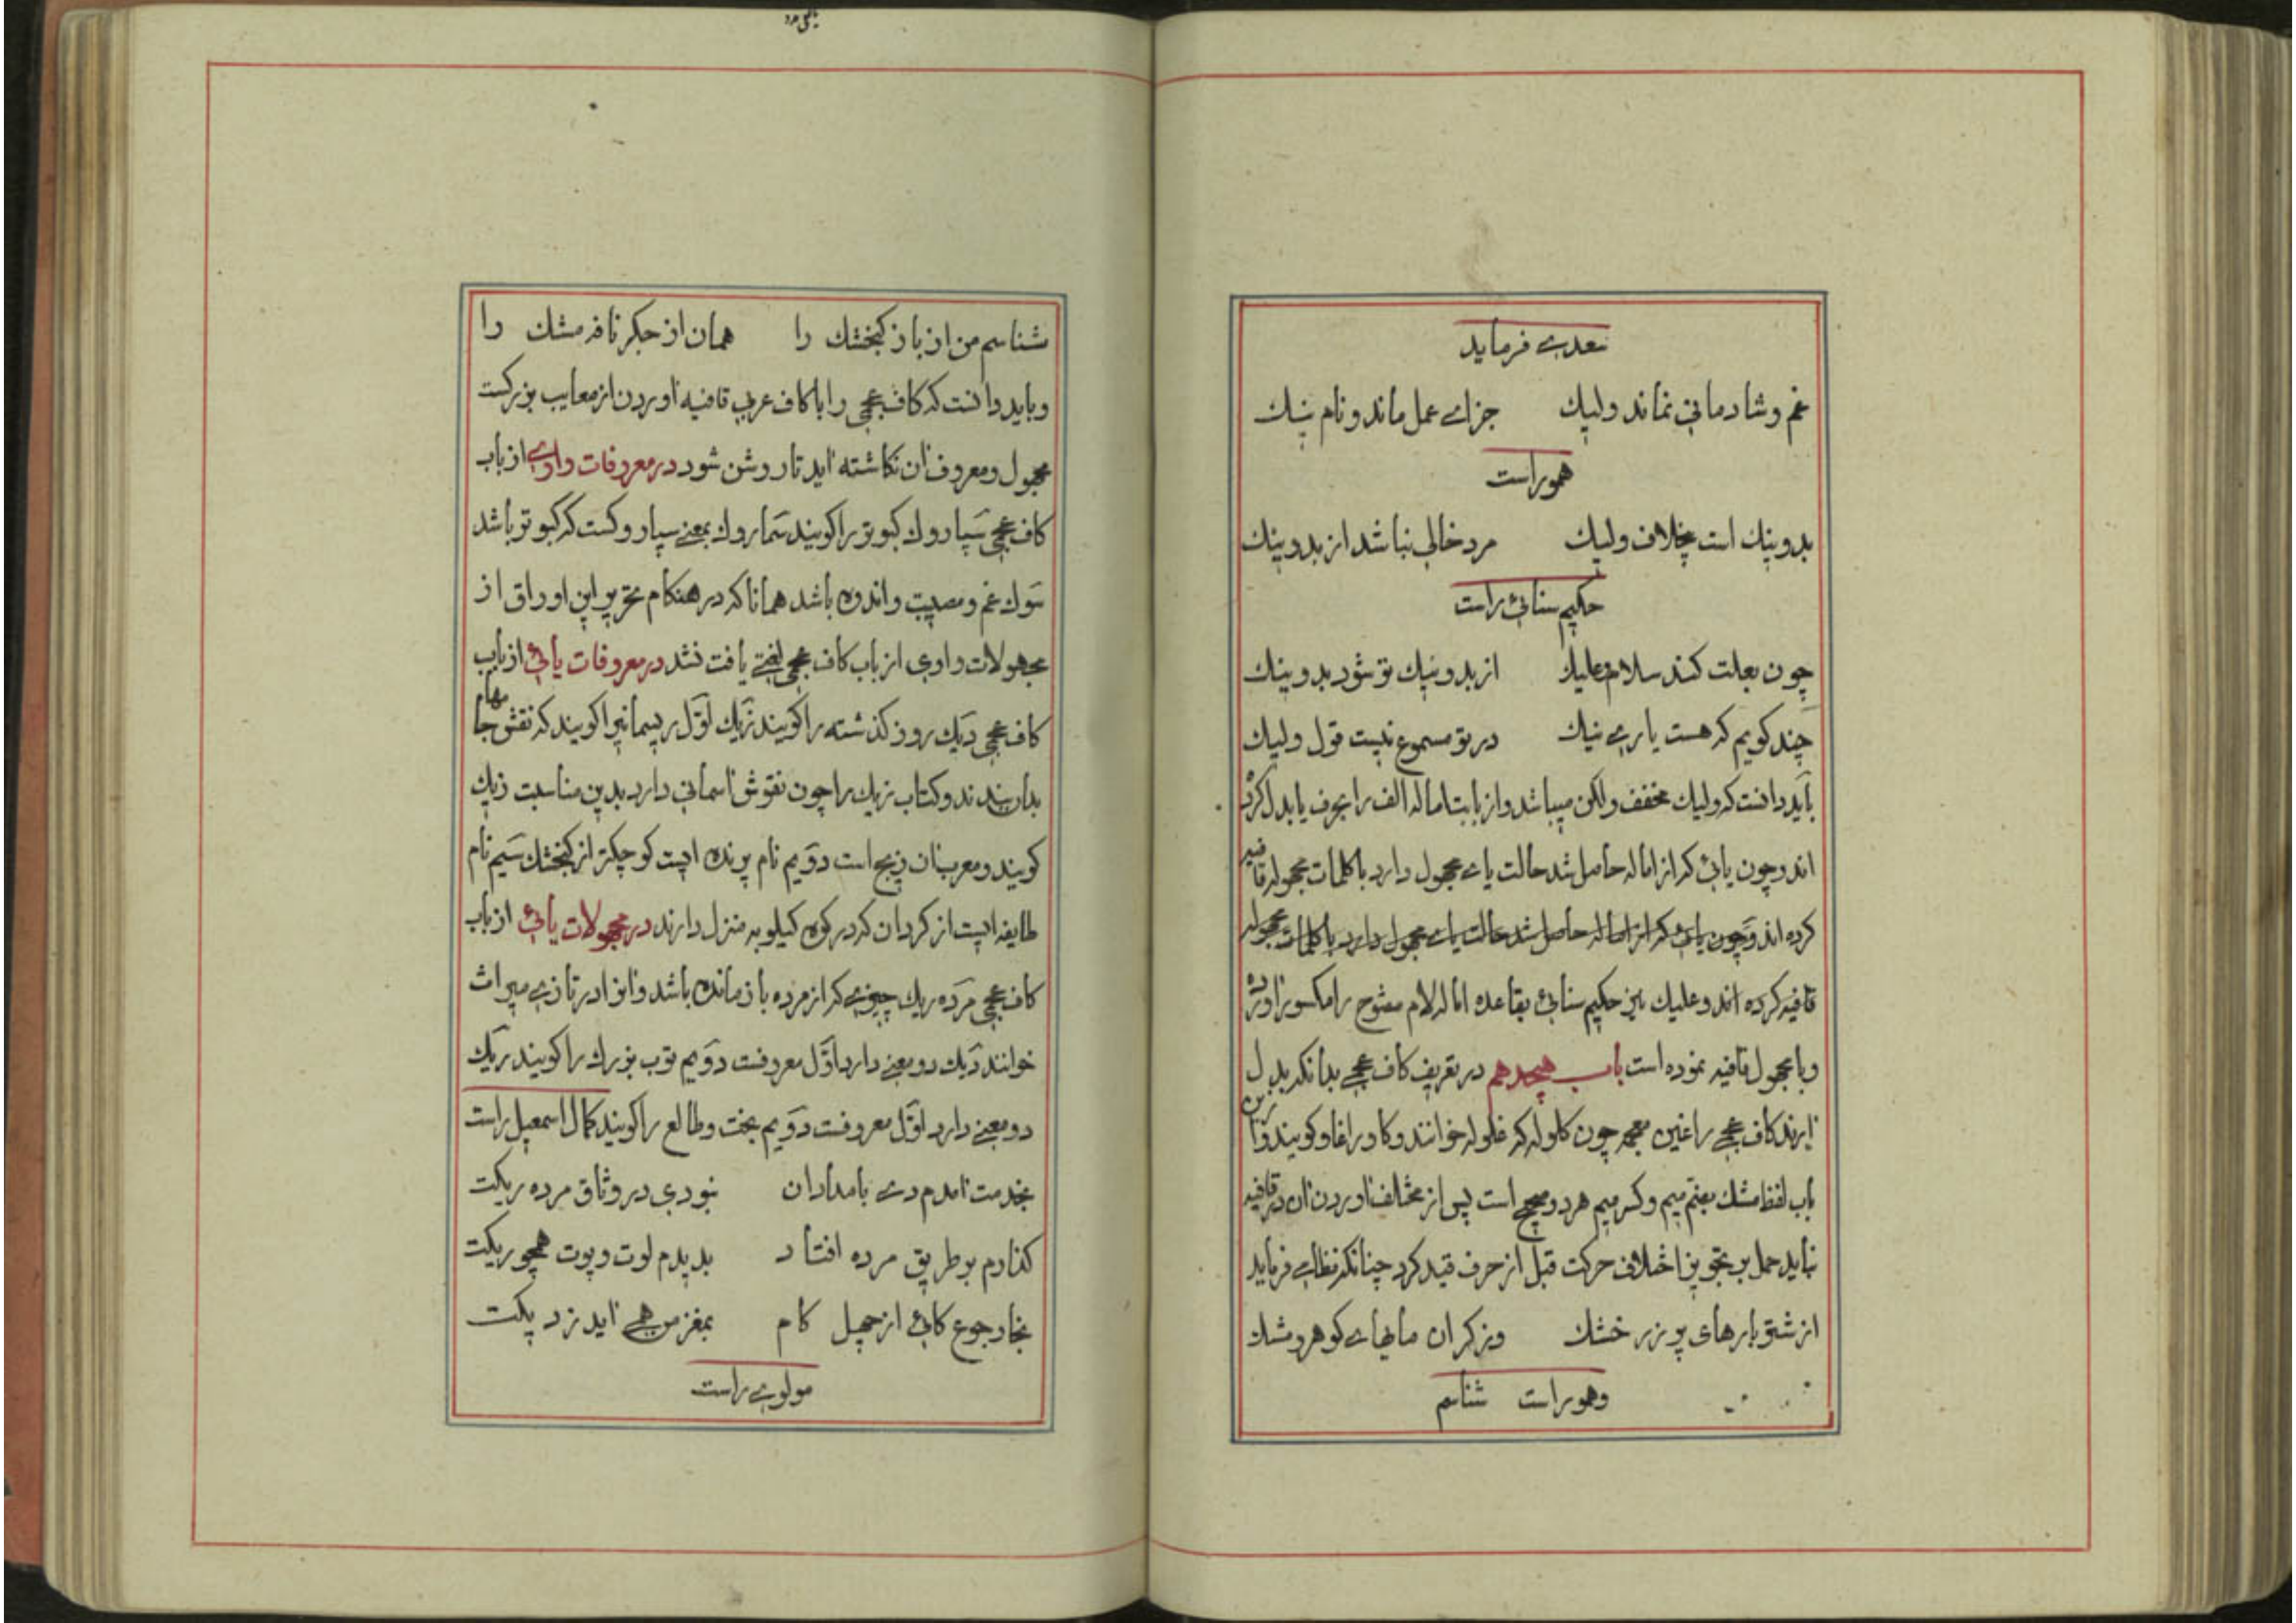 سعدی فرماید
غم و شادمانی نماند ولیك جزای عمل ماند و نام نیك
هموراست
بد و نیك است بخلاف ولیك مرد خالی نباشد از بد و نیك
حکیم سنائی راست
چون بعلت کند سلام علیك از بد و نیك تو شود بد و نیك
چند کویم که هست یاری نیك در تو مسموع نیست قول ولیك
باید دانست که ولیك مخفف ولکن میباشد و از بابت اماله الف را بحرف یا بدل کرده
اند و چون یائی که از اماله حاصل شد حالت یای مجهول دارد با کلمات مجهوله قافیه
کرده اند و چون یائی که از اماله حاصل شد حالت یای مجهول دارد با کلمات مجهوله
قافیه کرده اند و علیك نیز حکیم سنائی بقاعده اماله لام مفتوح را مکسور آورده
و با مجهول قافیه نموده است باب هیجدهم در تعریف کاف عجمی بدانکه بدل
آرند کاف عجمی را غین معجمه چون کلوله که غلوله خوانند و کاو را غاو کویند و در این
باب لفظ مشك بضم میم و کسر میم هر دو صحیح است پس از مخالف آوردن آن در قافیه
نباید حمل بر تجویز اختلاف حرکت قبل از حرف قید کرد چنانکه نظامی فرماید
از شتر بارهای پر زر خشك وز کران مایهای کوهر و مشك
وهوراست شناسم
شناسم من از باز کنجشك را همان از جکر نافه مشك را
و باید دانست که کاف عجمی را با کاف عربی قافیه آوردن از معایب بزرکست
مجهول و معروف آن نکاشته آید تا روشن شود در معروفات واوی از باب
کاف عجمی سپاروك کبوتر را کویند سماروك بمعنی سپاروکست که کبوتر باشد
سوك غم و مصیبت و اندوه باشد همانا که در هنکام تحریر این اوراق از
مجهولات واوی از باب کاف عجمی لغتی یافت نشد در معروفات یائی از باب
کاف عجمی دیك روز کذشته را کویند زیك اول ریسمانیرا کویند که نقش جامها
بدان بندند و کتاب زیك را چون نقوش آسمانی دارد بدین مناسبت زیك
کویند و معرب آن زیج است دویم نام پرنده ایست کوچکتر از کنجشك سیم نام
طایفه ایست از کردان که در کوه کیلویه منزل دارند در مجهولات یائی از باب
کاف عجمی مرده ریك چیزی که از مرده باز مانده باشد و آنرا در تازی میراث
خوانند دیك دو معنی دارد اول معروفست دویم توپ بزرك را کویند ریك
دو معنی دارد اول معروفست دویم بخت و طالع را کویند کمال اسمعیل راست
بخدمت آمدم دی بامدادان نبودی در وثاق مرده ریکت
کذارم بر طریق مرده افتاد بدیدم لوت و پوت همچو ریکت
بخار جوع کائی از چهل کام بمغز من همی آید ز دیکت
مولوی راست